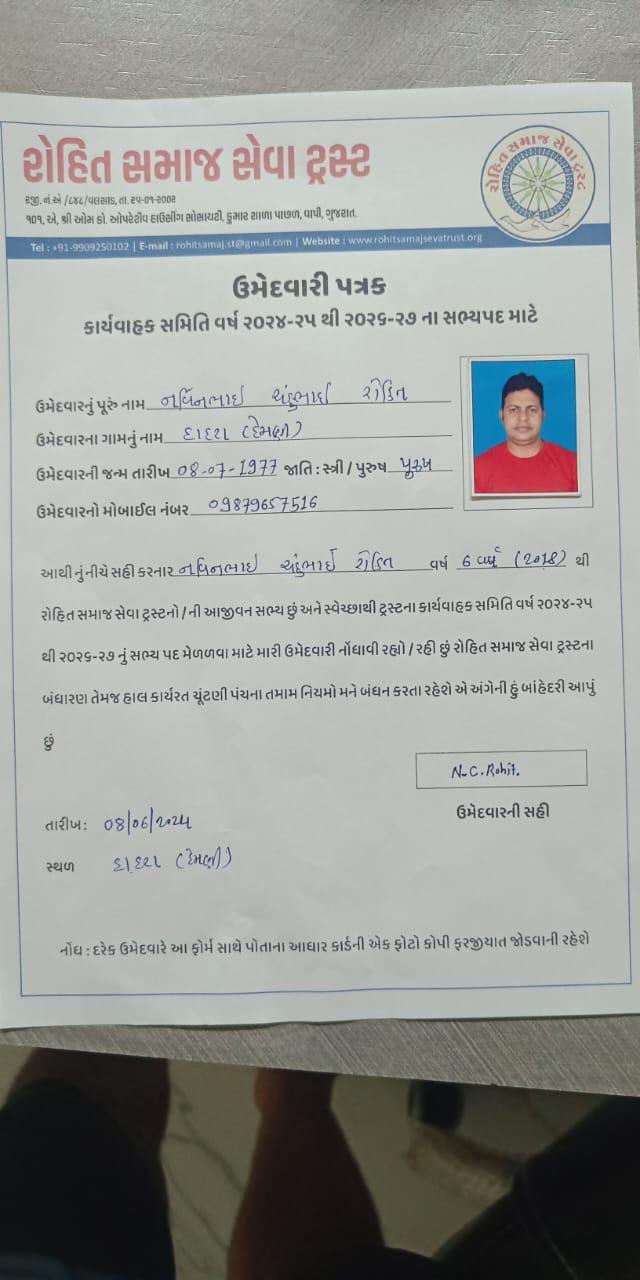 રોહિત સમાજ સેવા ટ્રસ્ટ
રજી. નં. એ /૮૪૮/વલસાડ, તા. ૨૫-૦૧-૨૦૦૨
૧૦૧, એ, શ્રી ઓમ કો. ઓપરેટીવ હાઉસીંગ સોસાયટી, કુમાર શાળા પાછળ, વાપી, ગુજરાત.
રોહિત સમાજ સેવા ટ્રસ્ટ
Tel : +91-9909250102 | E-mail : rohitsamaj.st@gmail.com | Website : www.rohitsamajsevatrust.org
ઉમેદવારી પત્રક
કાર્યવાહક સમિતિ વર્ષ ૨૦૨૪-૨૫ થી ૨૦૨૬-૨૭ ના સભ્યપદ માટે
ઉમેદવારનું પૂરું નામ નવિનભાઇ ચંદુભાઇ રોહિત
ઉમેદવારના ગામનું નામ દાદરા (દેમણી)
ઉમેદવારની જન્મ તારીખ 08-07-1977 જાતિ : સ્ત્રી / પુરુષ પુરુષ
ઉમેદવારનો મોબાઈલ નંબર 09879657516
આથી નુંનીચે સહી કરનાર નવિનભાઇ ચંદુભાઇ રોહિત વર્ષ 6 વર્ષ (2018) થી
રોહિત સમાજ સેવા ટ્રસ્ટનો / ની આજીવન સભ્ય છું અને સ્વેચ્છાથી ટ્રસ્ટના કાર્યવાહક સમિતિ વર્ષ ૨૦૨૪-૨૫
થી ૨૦૨૬-૨૭ નું સભ્ય પદ મેળળવા માટે મારી ઉમેદવારી નોંધાવી રહ્યો / રહી છું રોહિત સમાજ સેવા ટ્રસ્ટના
બંધારણ તેમજ હાલ કાર્યરત ચૂંટણી પંચના તમામ નિયમો મને બંધન કરતા રહેશે એ અંગેની હું બાંહેદરી આપું
છું
N.C.Rohit.
ઉમેદવારની સહી
તારીખ : 08/06/2024
સ્થળ દાદરા (દેમણી)
નોંધ : દરેક ઉમેદવારે આ ફોર્મ સાથે પોતાના આધાર કાર્ડની એક ફોટો કોપી ફરજીયાત જોડવાની રહેશે